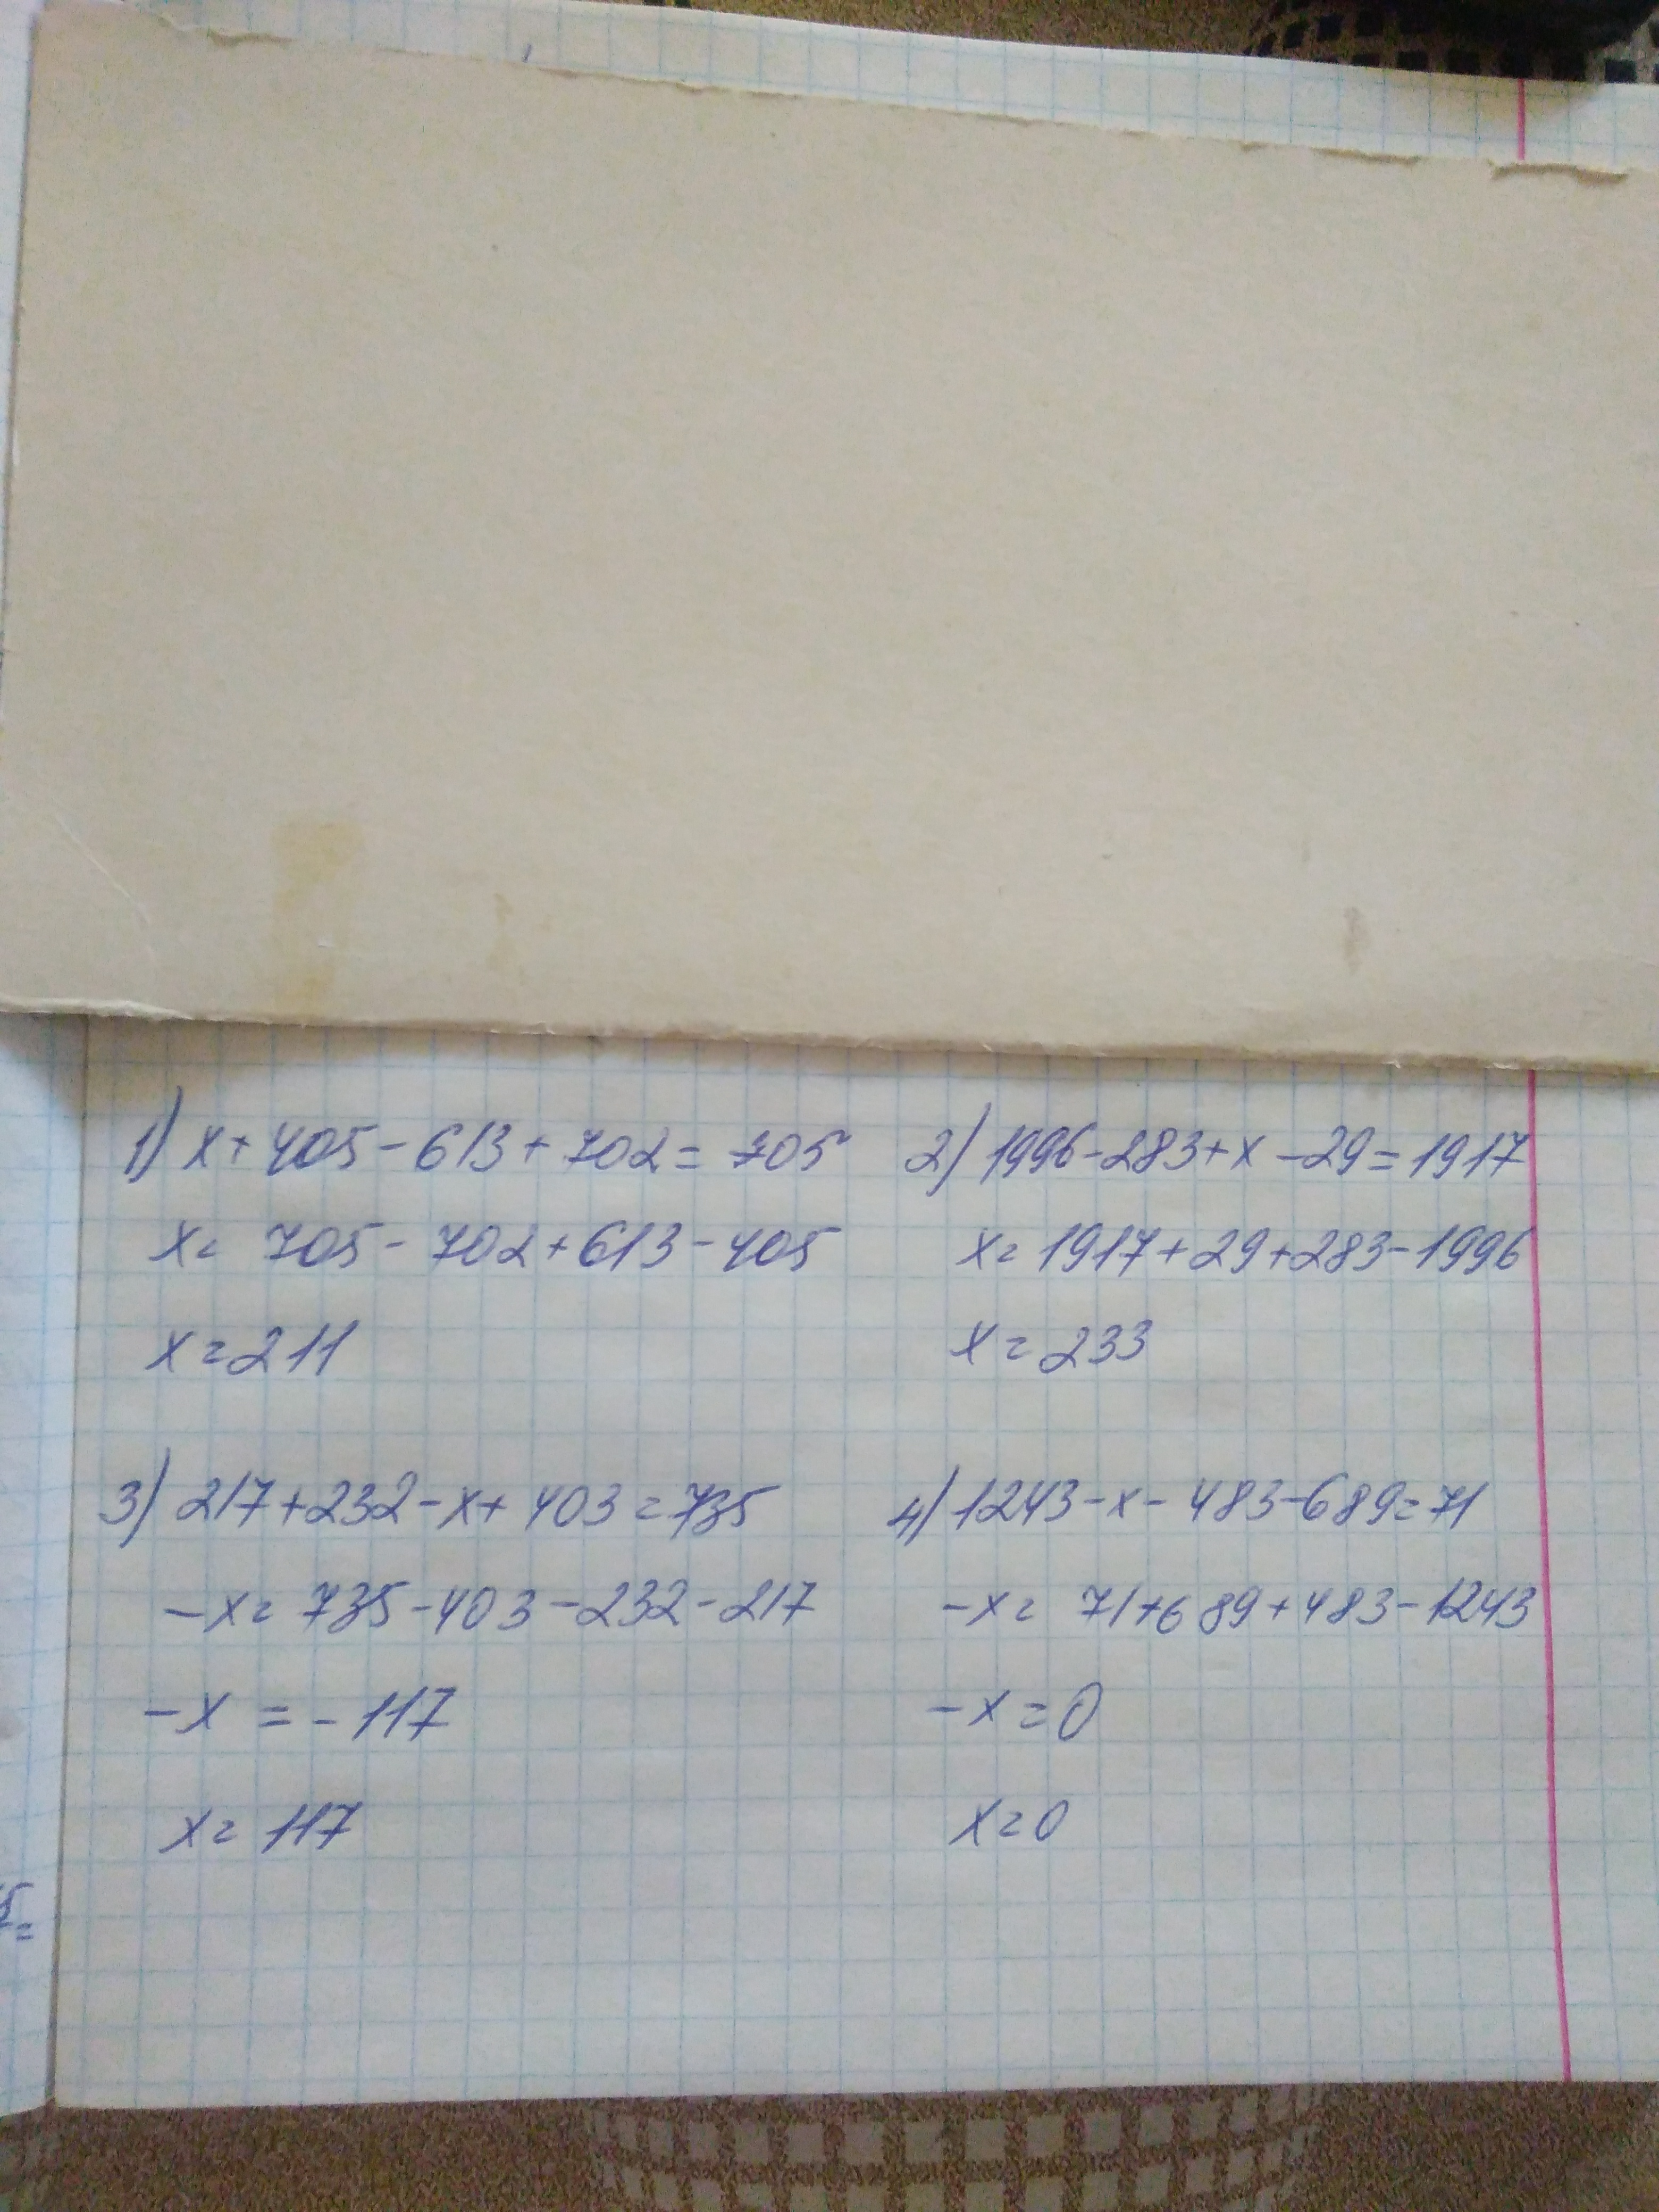 1) x+405-613+702=705
x= 705-702+613-405
x=211
2) 1996-283+x-29=1917
x=1917+29+283-1996
x=233
3) 217+232-x+403=735
-x=735-403-232-217
-x=-117
x=117
4) 1243-x-483-689=71
-x= 71+689+483-1243
-x=0
x=0
5=